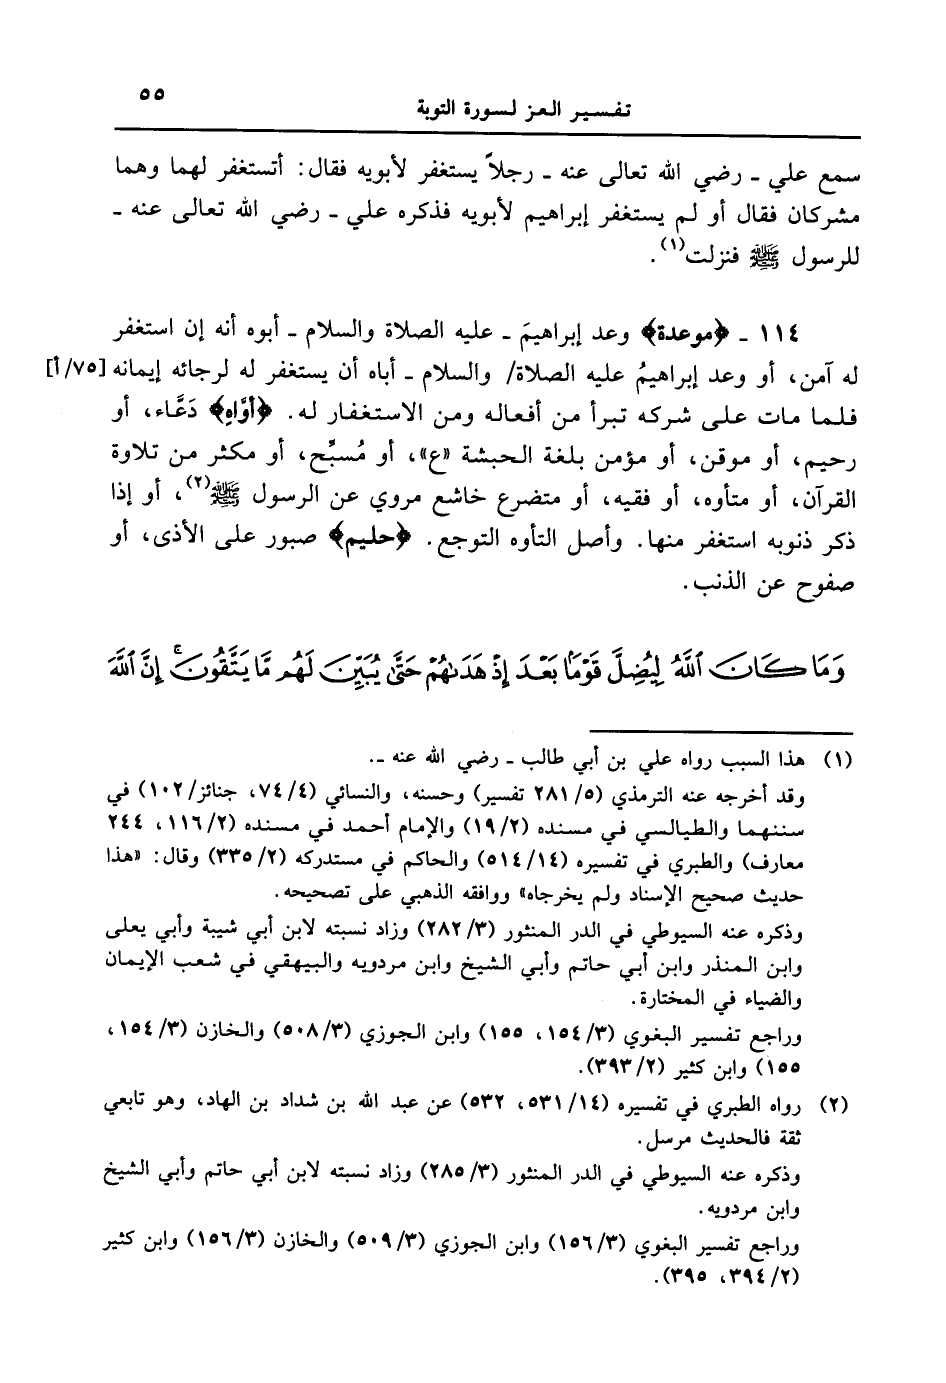 تفسير العز لسورة التوبة
٥٥
سمع علي ـ رضي الله تعالى عنه ـ رجلاً يستغفر لأبويه فقال: أتستغفر لهما وهما
مشركان فقال أو لم يستغفر إبراهيم لأبويه فذكره علي ـ رضي الله تعالى عنه ـ
للرسول ﷺ فنزلت(١).
١١٤ ـ ﴿موعدة﴾ وعد إبراهيمَ ـ عليه الصلاة والسلام ـ أبوه أنه إن استغفر
له آمن، أو وعد إبراهيمُ عليه الصلاة/ والسلام ـ أباه أن يستغفر له لرجائه إيمانه [٧٥/أ]
فلما مات على شركه تبرأ من أفعاله ومن الاستغفار له. ﴿أوَّاه﴾ دَعَّاء، أو
رحيم، أو موقن، أو مؤمن بلغة الحبشة «ع»، أو مُسبِّح، أو مكثر من تلاوة
القرآن، أو متأوه، أو فقيه، أو متضرع خاشع مروي عن الرسول ﷺ(٢)، أو إذا
ذكر ذنوبه استغفر منها. وأصل التأوه التوجع. ﴿حليم﴾ صبور على الأذى، أو
صفوح عن الذنب.
وَمَا كَانَ ٱللَّهُ لِيُضِلَّ قَوْمًۢا بَعْدَ إِذْ هَدَىٰهُمْ حَتَّىٰ يُبَيِّنَ لَهُم مَّا يَتَّقُونَۚ إِنَّ ٱللَّهَ
(١) هذا السبب رواه علي بن أبي طالب ـ رضي الله عنه ـ.
وقد أخرجه عنه الترمذي (٢٨١/٥ تفسير) وحسنه، والنسائي (٧٤/٤، جنائز/١٠٢) في
سننهما والطيالسي في مسنده (١٩/٢) والإمام أحمد في مسنده (١١٦/٢، ٢٤٤
معارف) والطبري في تفسيره (٥١٤/١٤) والحاكم في مستدركه (٣٣٥/٢) وقال: «هذا
حديث صحيح الإسناد ولم يخرجاه» ووافقه الذهبي على تصحيحه.
وذكره عنه السيوطي في الدر المنثور (٢٨٢/٣) وزاد نسبته لابن أبي شيبة وأبي يعلى
وابن المنذر وابن أبي حاتم وأبي الشيخ وابن مردويه والبيهقي في شعب الإيمان
والضياء في المختارة.
وراجع تفسير البغوي (١٥٤/٣، ١٥٥) وابن الجوزي (٥٠٨/٣) والخازن (١٥٤/٣،
١٥٥) وابن كثير (٣٩٣/٢).
(٢) رواه الطبري في تفسيره (٥٣١/١٤، ٥٣٢) عن عبد الله بن شداد بن الهاد، وهو تابعي
ثقة فالحديث مرسل.
وذكره عنه السيوطي في الدر المنثور (٢٨٥/٣) وزاد نسبته لابن أبي حاتم وأبي الشيخ
وابن مردويه.
وراجع تفسير البغوي (١٥٦/٣) وابن الجوزي (٥٠٩/٣) والخازن (١٥٦/٣) وابن كثير
(٣٩٤/٢، ٣٩٥).